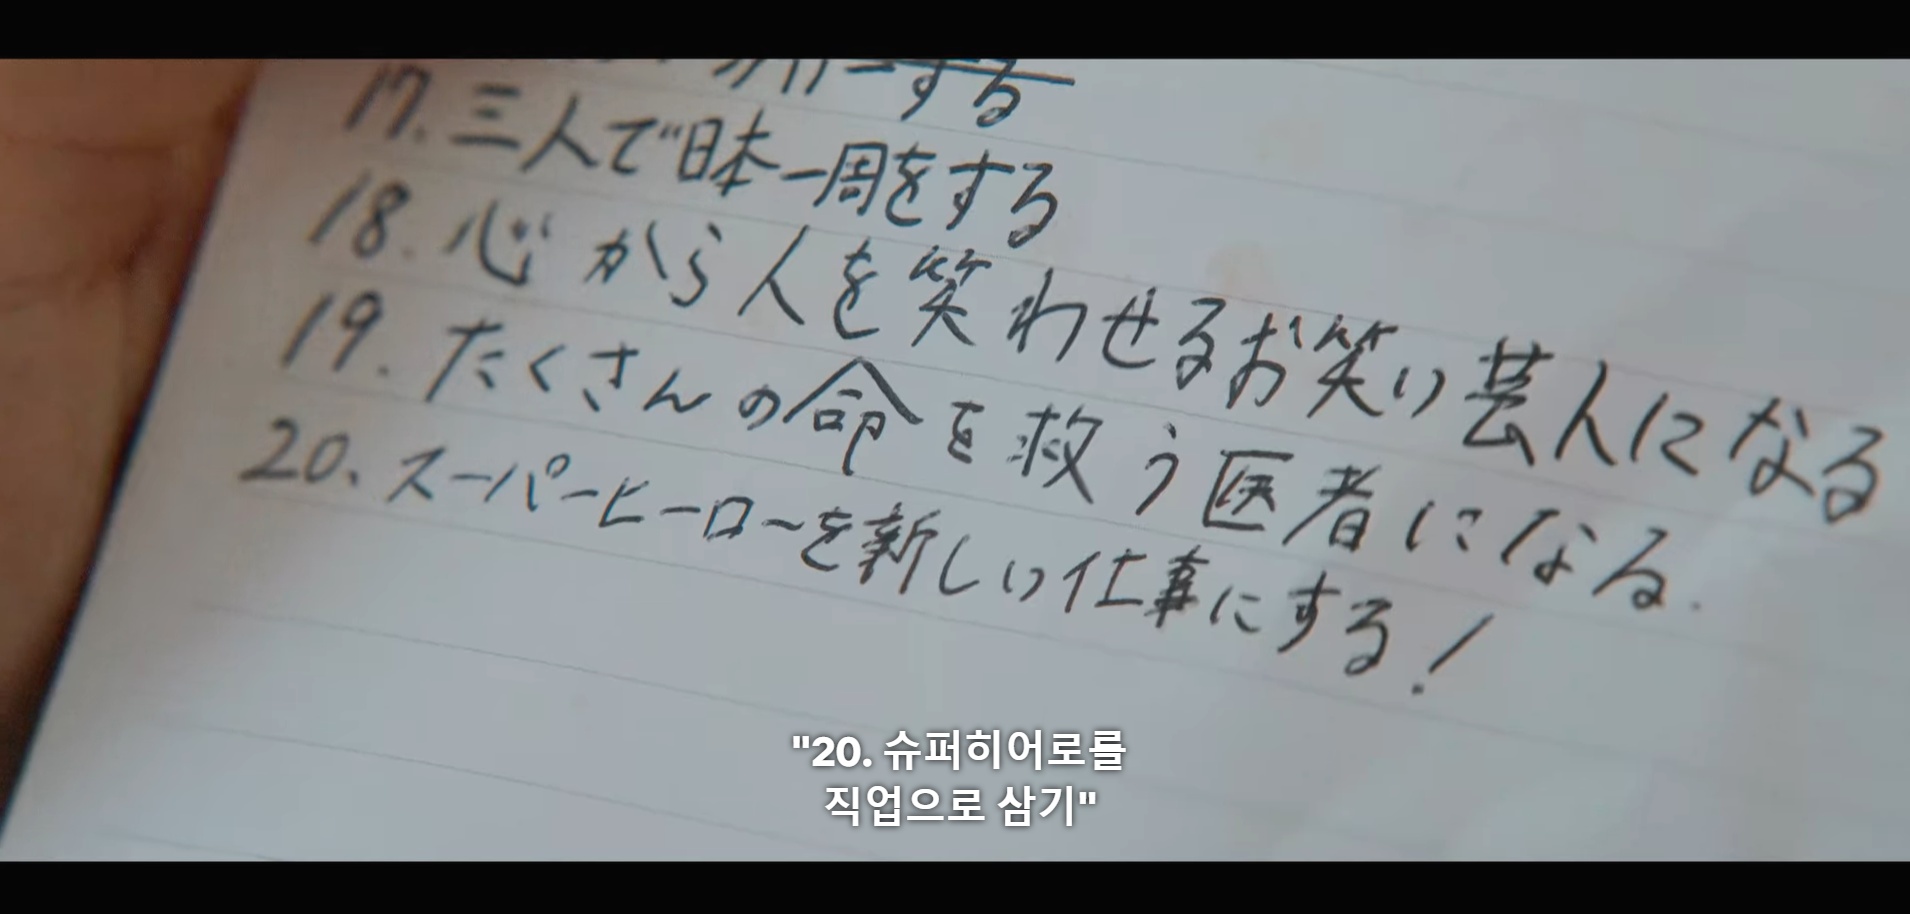 する
17. 三人で日本一周をする
18. 心から人を笑わせるお笑い芸人になる
19. たくさんの命を救う医者になる.
20. スーパーヒーローを新しい仕事にする!
"20. 슈퍼히어로를
직업으로 삼기"